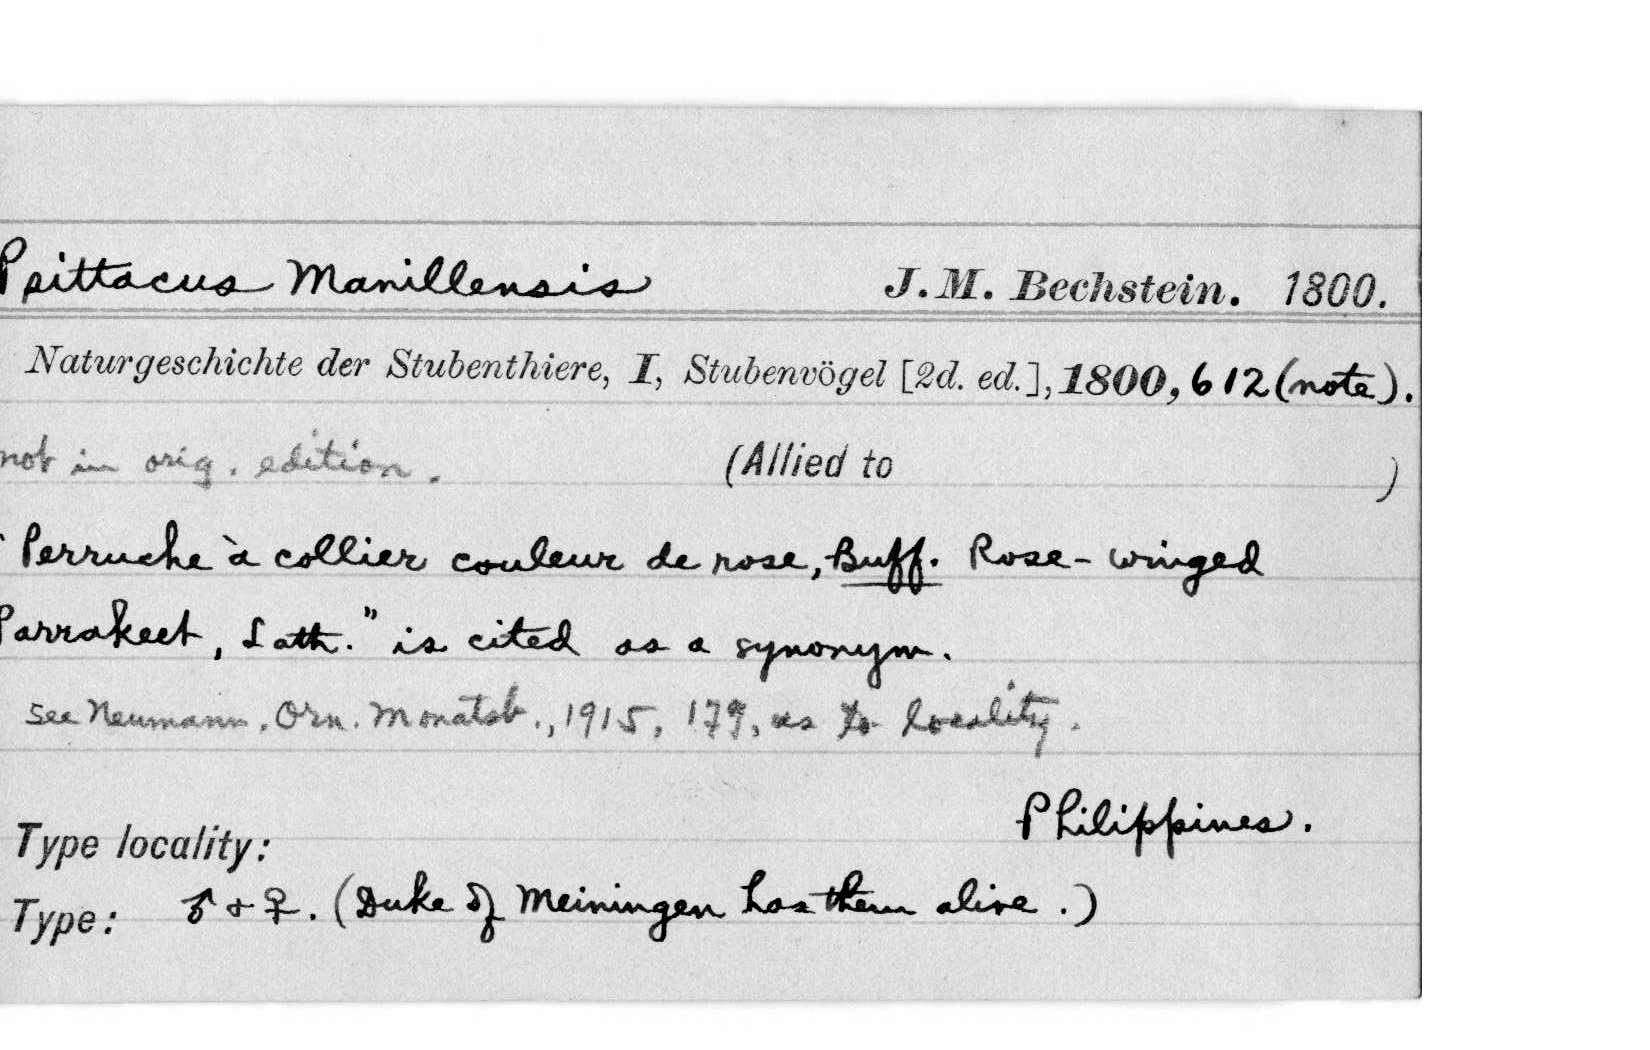 Psittacus Manillensis J.M. Bechstein. 1800.
Naturgeschichte der Stubenthiere, I, Stubenvögel [2d. ed.], 1800, 612 (note).
not in orig. edition. (Allied to )
"Perruche à collier couleur de rose, Buff. Rose-winged
Parrakeet, Lath." is cited as a synonym.
See Neumann, Orn. Monatsb., 1915, 179, as to locality.
Philippines.
Type locality:
Type: ♂ + ♀. (Duke of Meiningen has them alive.)